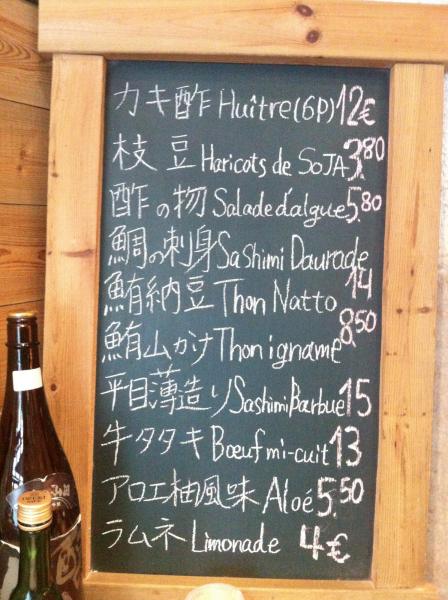 カキ酢 Huître(6P) 12€
枝豆 Haricots de SoJA 3.80
酢の物 Salade d'algue 5.80
鯛の刺身 Sashimi Daurade 14
鮪納豆 Thon Natto 8.50
鮪山かけ Thon igname
平目薄造り Sashimi Barbue 15
牛タタキ Boeuf mi-cuit 13
アロエ柚風味 Aloé 5.50
ラムネ Limonade 4€